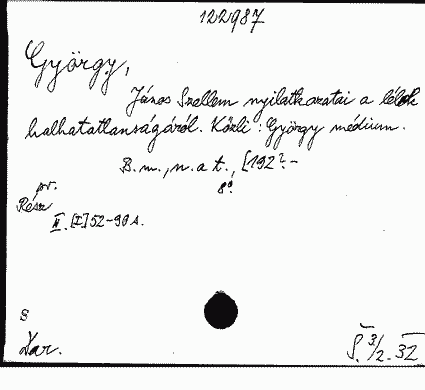 122987
György,
János Szellem nyilatkozatai a lélek
halhatatlanságáról. Közli: György médium.
B.m., n. a t., [192?-
8°
pr.
Rész
II. [I] 52-90 s.
s
P. 3/2. 32